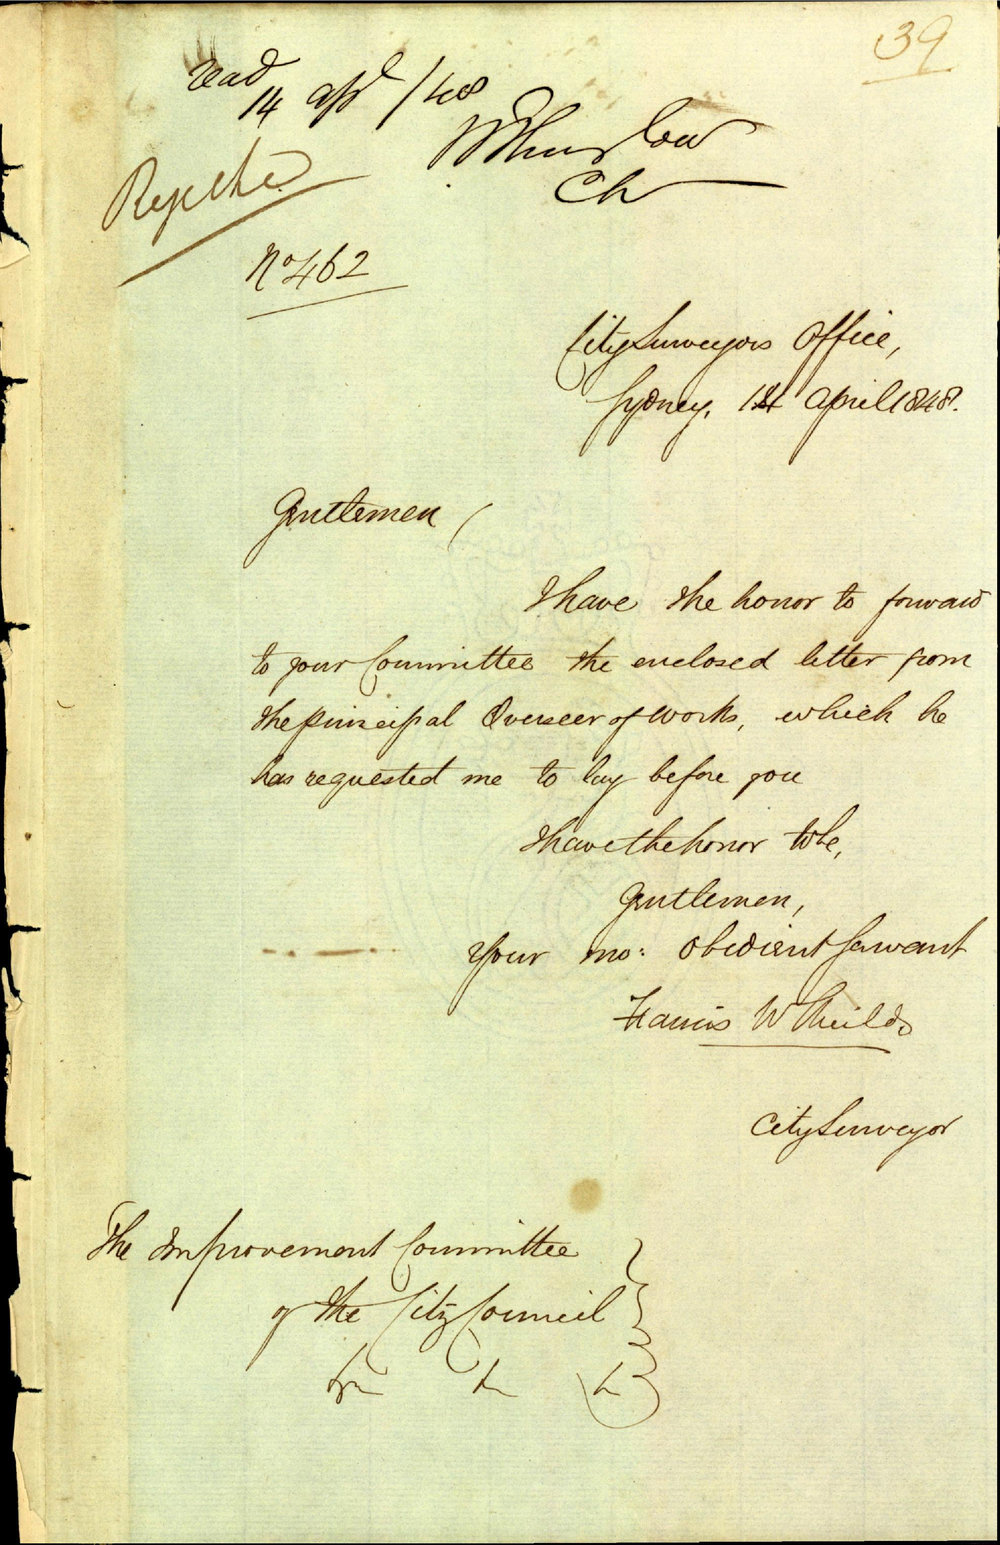 39
Read
14 Apl /48
W Thurlow
Ch
No 462
City Surveyors Office,
Sydney, 14 April 1848.
Gentlemen,
I have the honor to forward
to your Committee the enclosed letter from
the Principal Overseer of Works, which he
has requested me to lay before you
I have the honor to be,
Gentlemen,
Your mo: obedient Servant
Francis W Sheilds
City Surveyor
The Improvement Committee
of the City Council